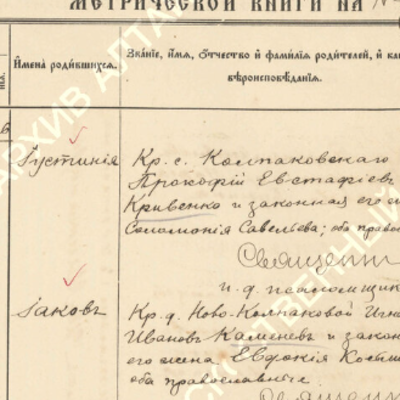 МЕТРИЧЕСКОЙ КНИГИ НА
Имена родившихся.
Званіе, имя, отчество и фамилія родителей, и ка
вѣроисповѣданія.
Іустинія
Кр. с. Колпаковскаго
Прокофій Евстафіевъ
Кривенко и законная его
Соломонія Савельева; оба право
Священни
и. д. псаломщик
Іаковъ
Кр. д. Ново-Колпаковой Игна
Ивановъ Каменевъ и закон
его жена Евдокія
оба православные.
Священ
АРХИВ АЛТА